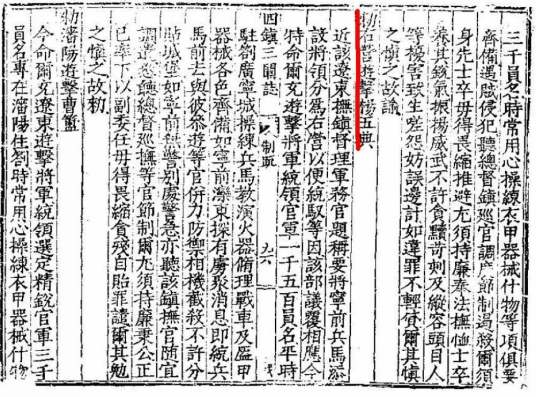 三千員名時常用心操練衣甲器械什物等項俱要
齊備遇賊侵犯聽總督鎮巡官調度節制遏殺爾須
身先士卒毋得畏縮推避尤須持廉奉法撫恤士卒
養其銳氣振揚威武不許貪黷苛刻及縱容頭目人
等擾害致生嗟怨妨誤邊計如違罪不輕貸爾其慎
之慎之故勑
勑右營遊擊楊五典
近該遼東撫鎮督理軍務官題稱要將寧前兵馬添
設將領分為右營以便統馭等因該部議覆相應今
特命爾充遊擊將軍統領官軍一千五百員名平時
四鎮三關志 制疏 九六
駐劄廣寧城操練兵馬教演火器脩理戰車及區甲
器械各色齊備如寧前東探有虜聚消息即統兵
馬前去與彼叅遊等官併力防禦相機截殺不許分
貼城堡如寧前無警別處警急亦聽該鎮撫官隨宜
調遣悉聽總督巡撫等官節制爾尤須持廉秉公正
己率下以副委任毋得畏縮貪殘自貽罪譴爾其勉
之慎之故勑
勑瀋陽遊擊曹簠
今命爾充遼東遊擊將軍統領選定精銳官軍三千
員名專在瀋陽住劄時常用心操練衣甲器械什物